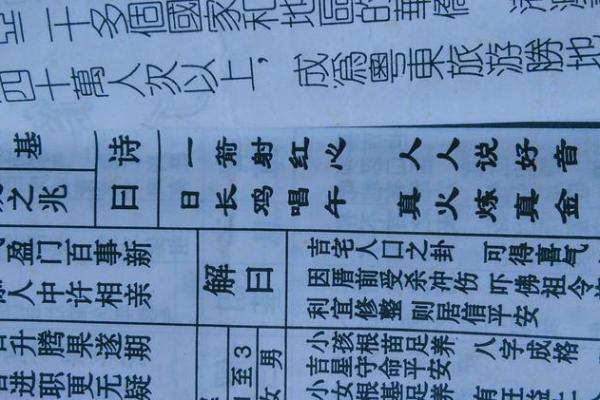 二十多個國家和地區的華僑
四十萬人次以上，成為粵東旅游勝地
基
之兆
诗曰
一箭射红心 人人说好音
日长鸡唱午 真火炼真金
盈门百事新
人中许相亲
解曰
吉宅人口之卦 可得喜气
因厝前受杀冲伤 吓佛祖令
利宜修整 则居信平安
升腾果遂期
进职更无疑
至3
男
女
小孩根苗足养 八字成格
吉星守命平安
小女根基足养 有旺益